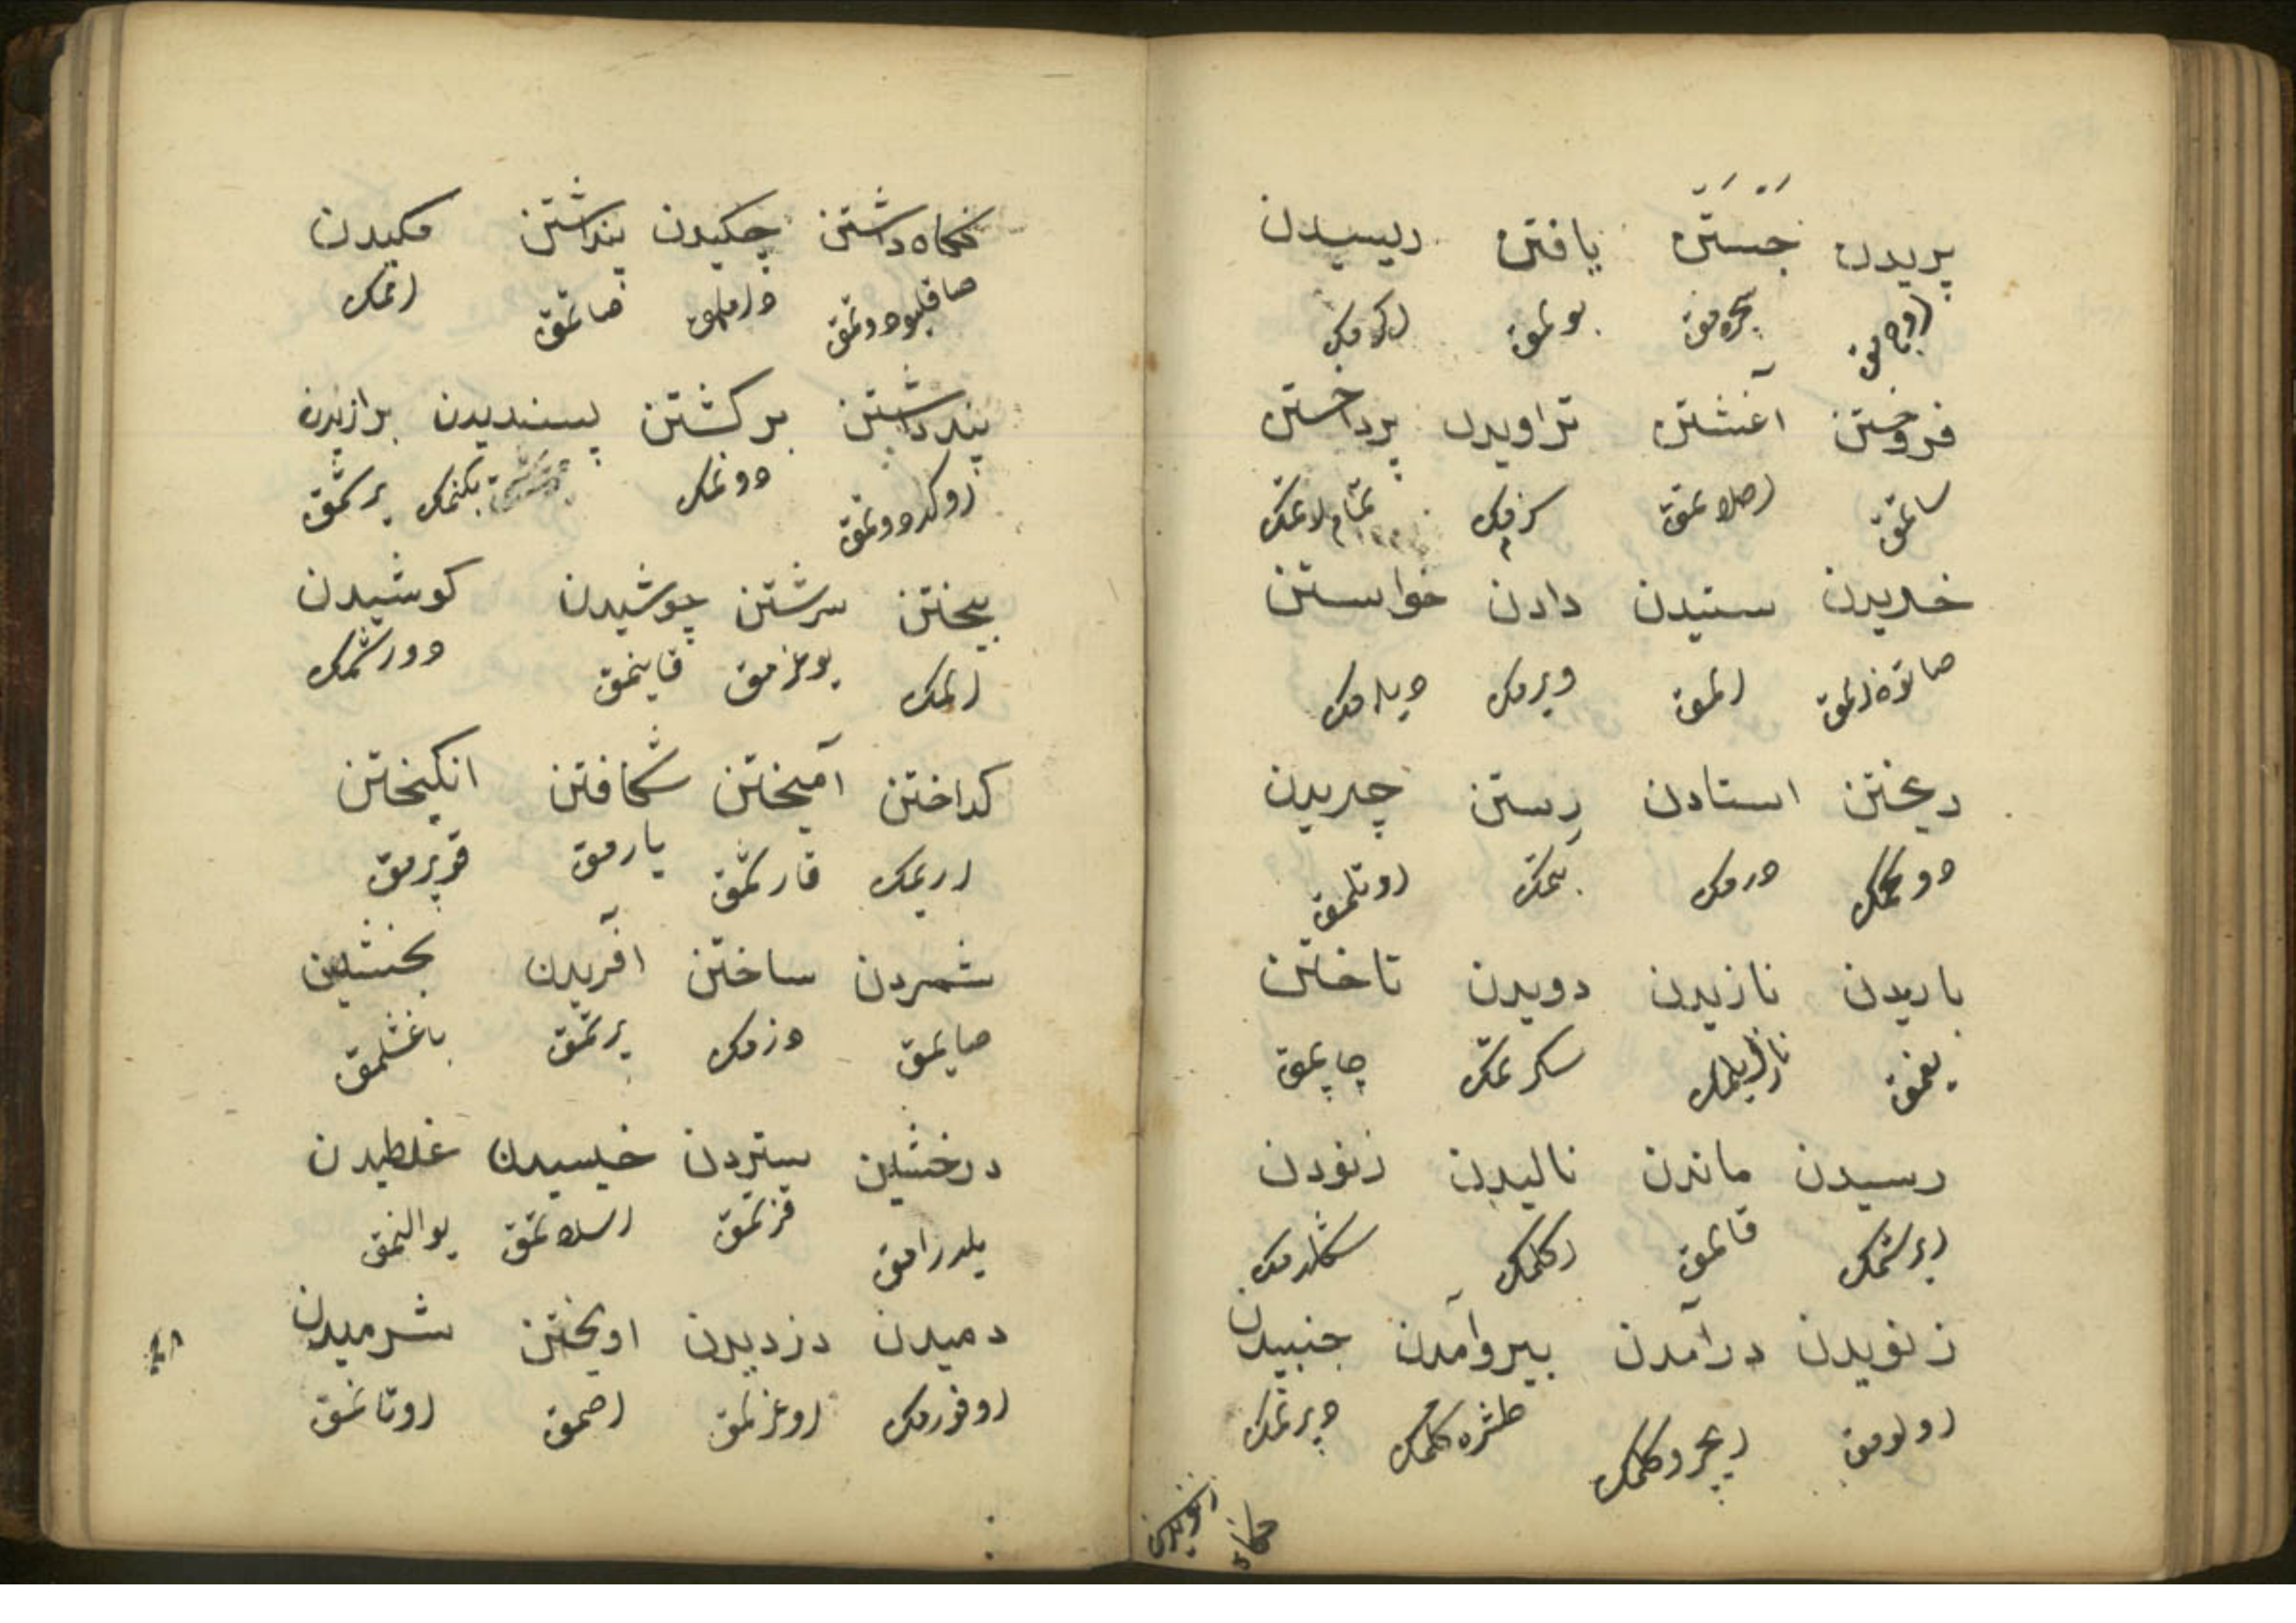 پریدن جستن یافتن ریسیدن
اوچمق صچرمق بولمق اکرمک
فروختن آغشتن تراویدن پرداختن
ساتمق اصلاتمق
خریدن ستیدن دادن خواستن
صاتون المق المق ویرمک دیلمک
ریختن استادن رستن چریدن
دوکمک درمک بتمک اوتلمق
باریدن نازیدن دویدن تاختن
یغمق نازایلمک سکرتمک چاپمق
رسیدن ماندن نالیدن زنودن
ایرشمک قالمق اکلمک
زنویدن درآمدن بیروآمدن جنبیدن
اولومق ایچروکلمک طشره کلمک دپرنمک
زنویدن نکاه
نکاه داشتن چکیدن پنداشتن مکیدن
صاقلیودوتمق طاملمق صانمق اممک
پندداشتن برکشتن پسندیدن برازیدن
اوکددوتمق دونمک بکنمک یرشمق
بیختن سرشتن جوشیدن کوشیدن
المک یوغرمق قاینمق دورشمک
کداختن آمیختن شکافتن انکیختن
اریمک قارشمق یارمق قوپرمق
شمردن ساختن آفریدن بخشیدن
صایمق دزمک یرتمق باغشلمق
درخشیدن ستردن خیسیدن غلطیدن
یلدرامق قزتمق اسلاتمق یوالنمق
دمیدن دزدیدن اویختن شرمیدن
اوفورمک اوغرلمق اصمق اوتانمق